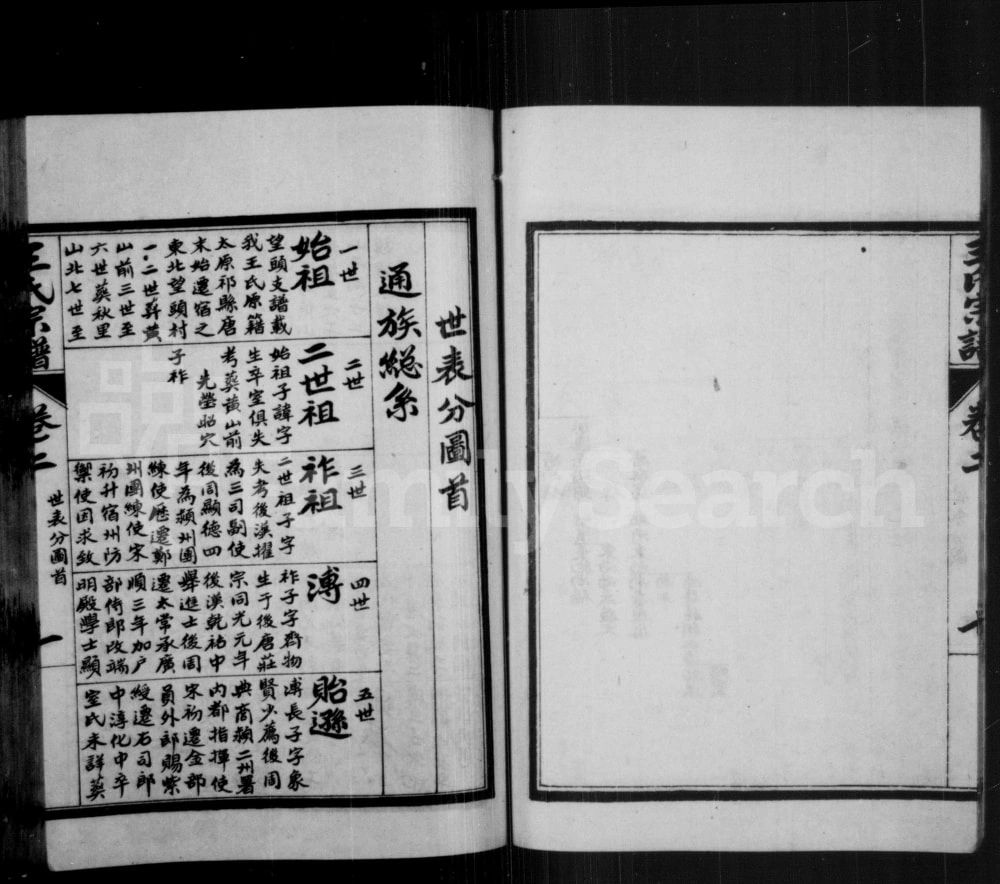 世表分圖首
通族總系
一世
始祖
望頭支譜載
我王氏原籍
太原祁縣唐
末始遷宿之
東北望頭村
一二世葬黄
山前三世至
六世葬秋里
山北七世至
二世
二世祖
始祖子諱字
生卒室俱失
考葬黄山前
先塋昭穴
子祚
三世
祚祖
二世祖子字
失考後漢擢
為三司副使
後周顯德四
年為潁州團
練使歷遷鄭
州團練使宋
初升宿州防
禦使因求致
四世
溥
祚子字齊物
生于後唐莊
宗同光元年
後漢乾祐中
舉進士後周
遷太常承廣
順三年加户
部侍郎改端
明殿學士顯
五世
貽遜
溥長子字象
賢少薦後周
典商潁二州署
内都指揮使
宋初遷金部
員外郎賜紫
綬遷石司郎
中淳化中卒
室氏未詳葬
王氏宗譜
卷二
世表分圖首
一
王氏宗譜
卷二
FamilySearch